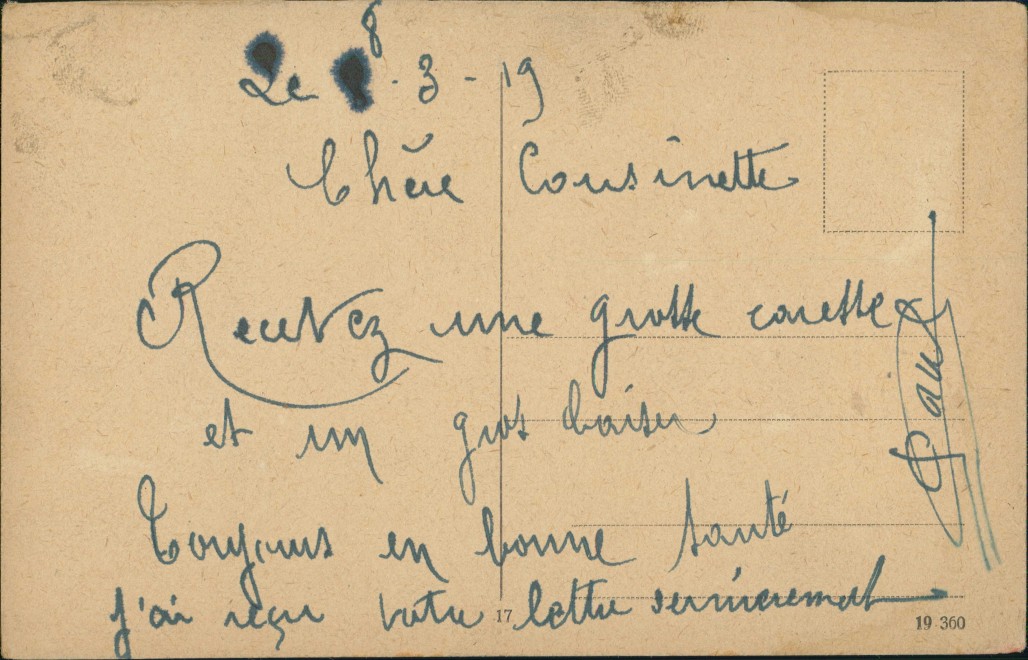 Le 8 - 3 - 19
Chère Cousinette
Recevez une grosse caresse
et un gros baiser
Toujours en bonne santé
j'ai reçu votre lettre dernièrement
Paul
17
19 360